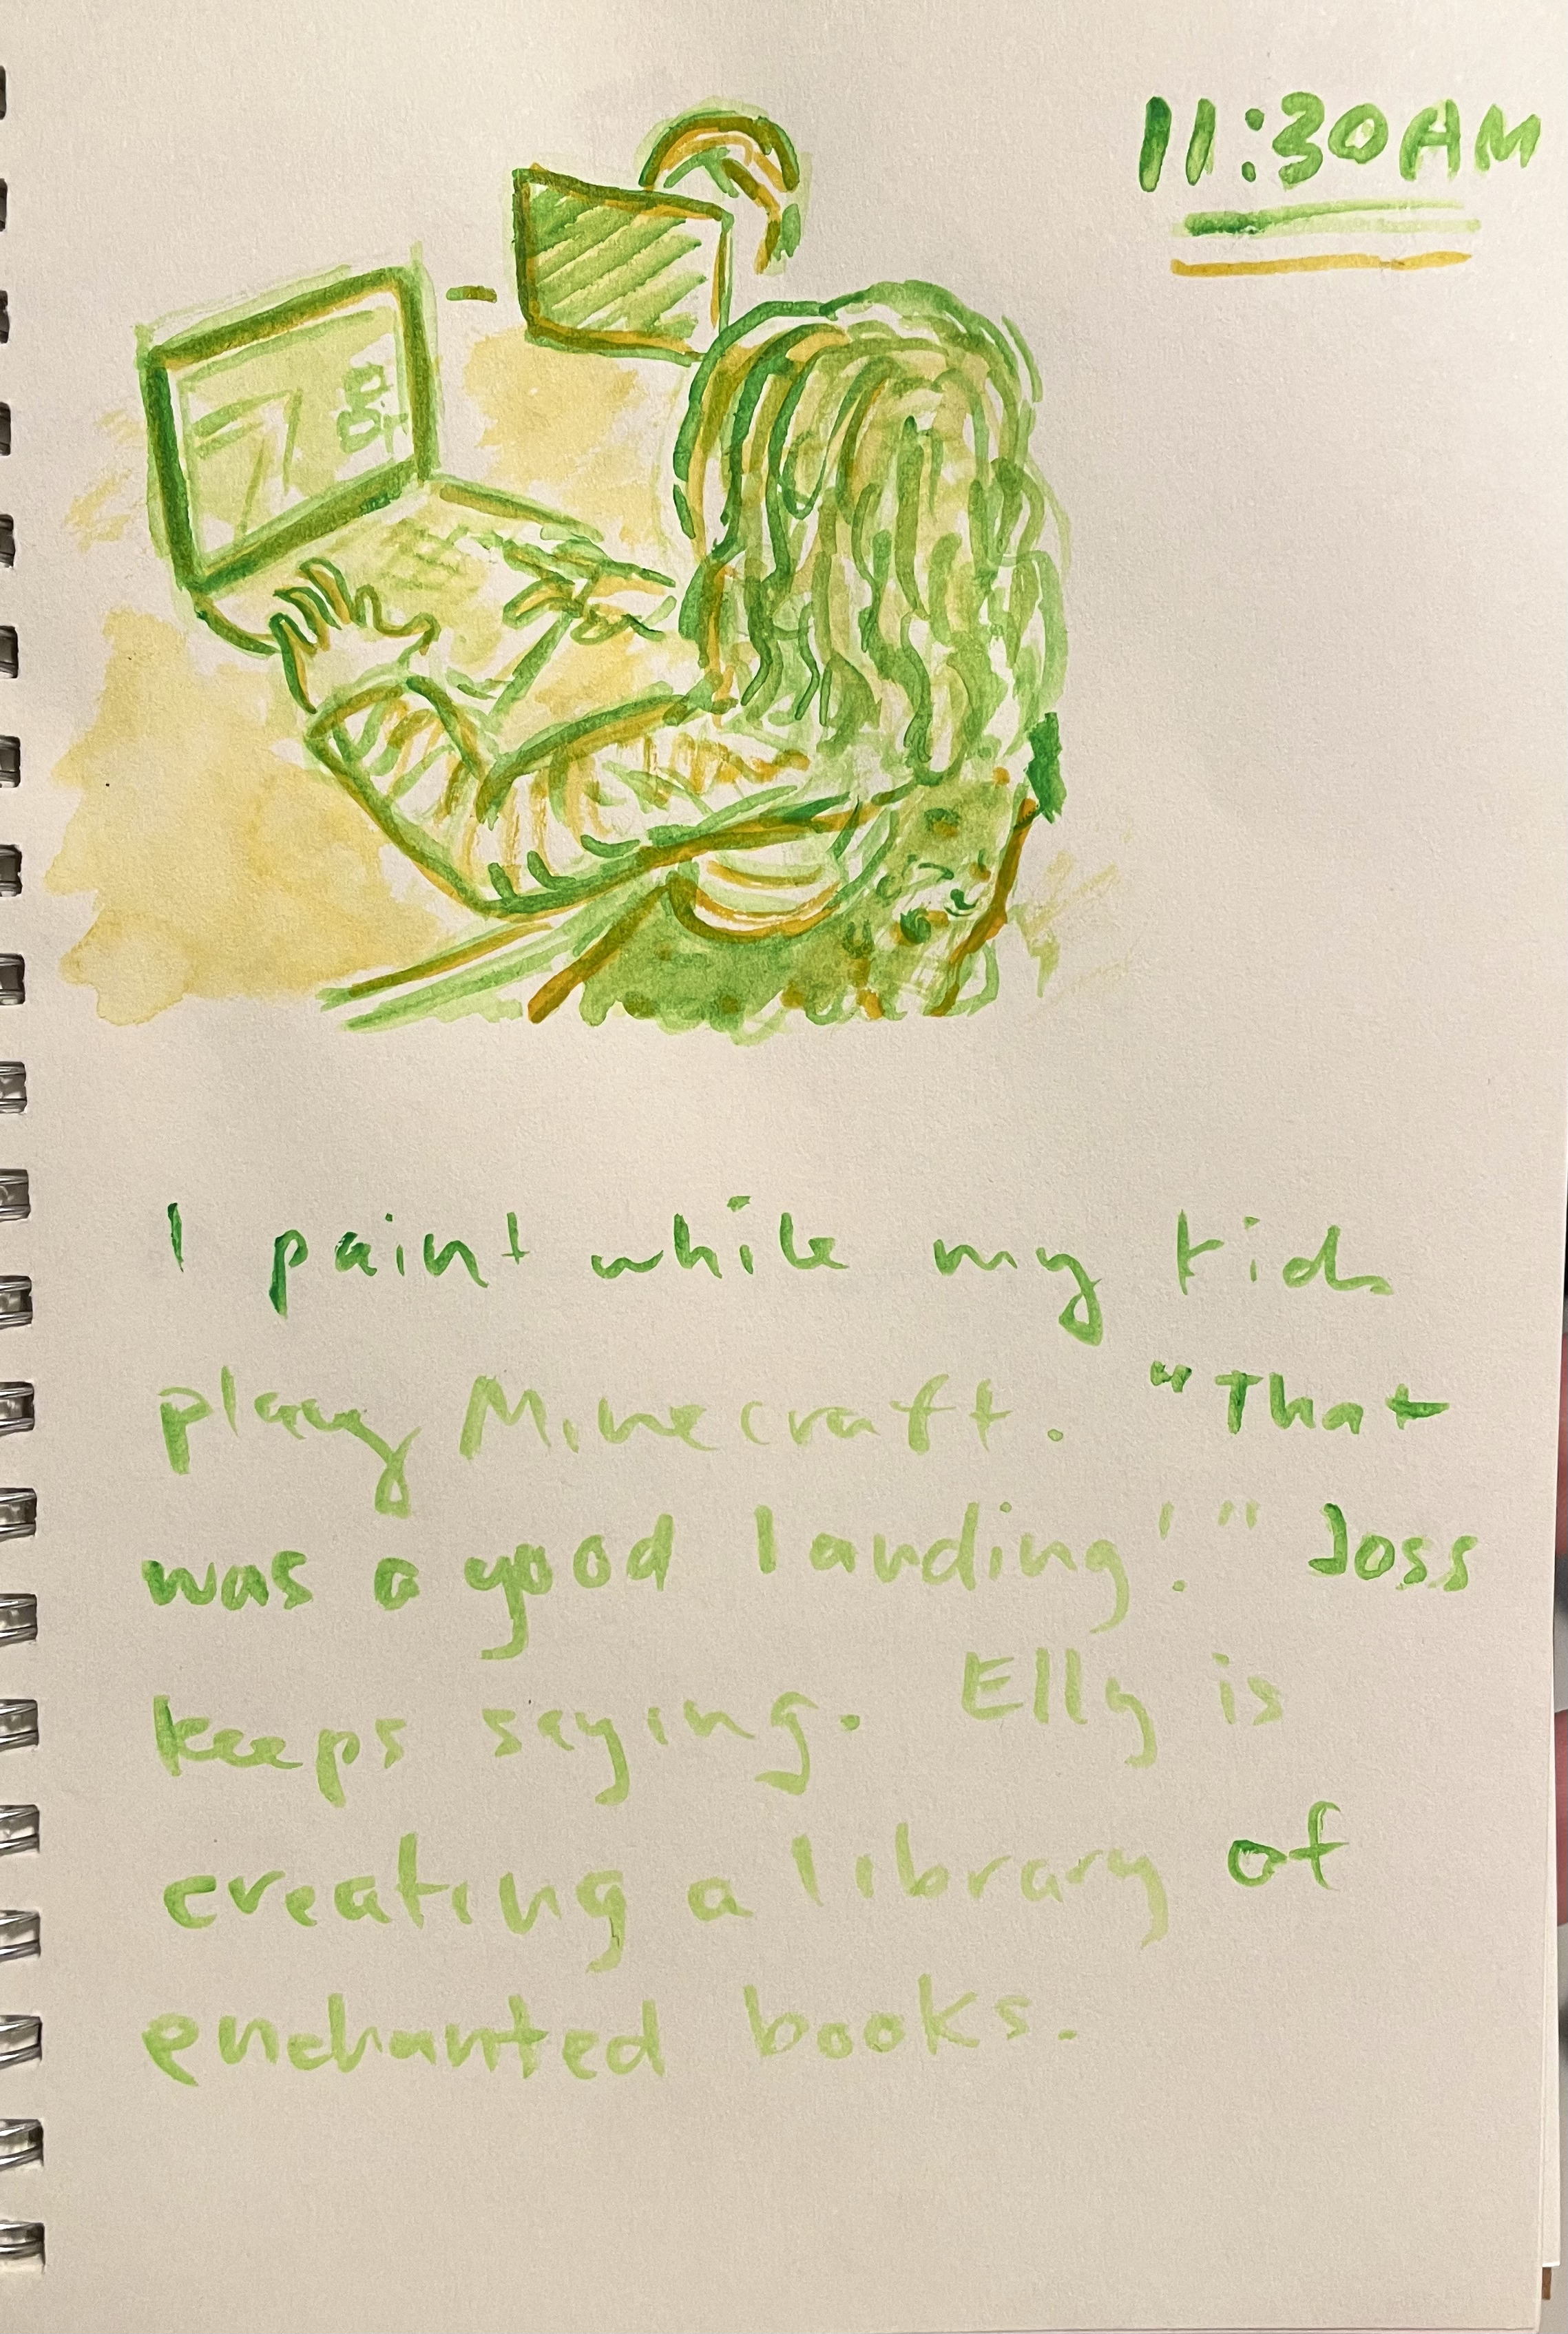 11:30AM
I paint while my kids
play Minecraft. "That
was a good landing!" Joss
keeps saying. Elly is
creating a library of
enchanted books.